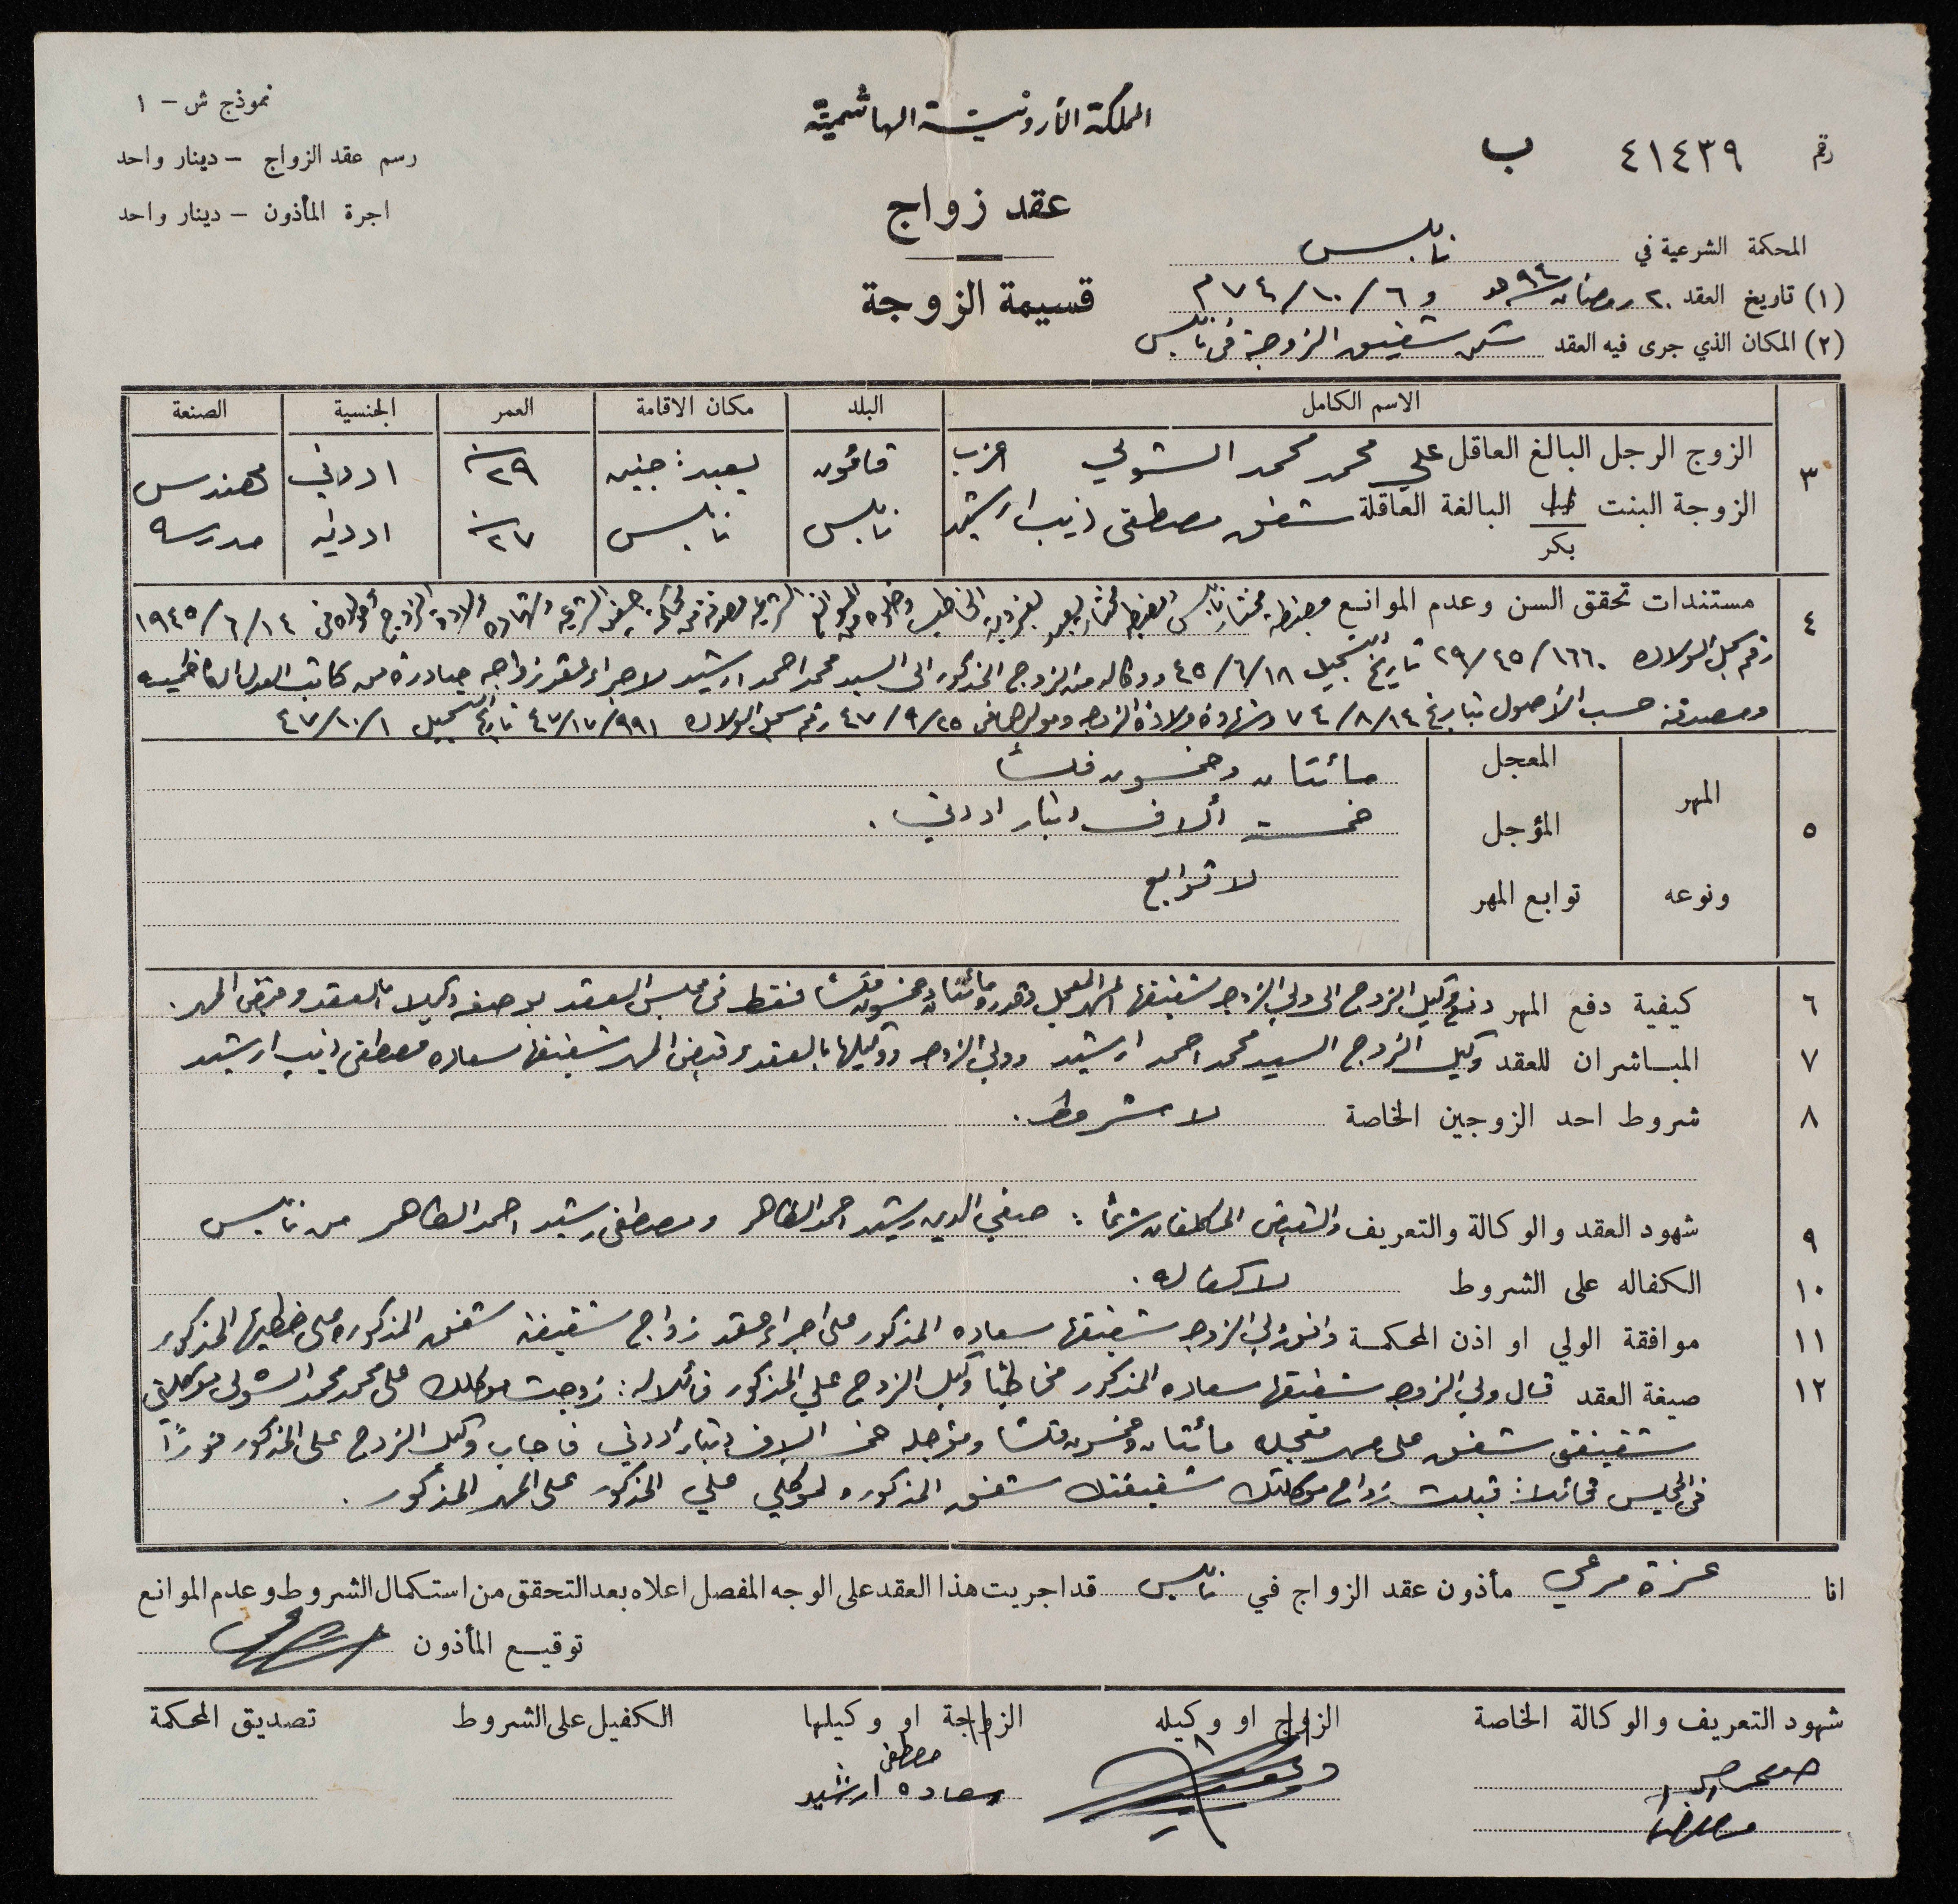 نموذج ش - ١
رسم عقد الزواج - دينار واحد
اجرة المأذون - دينار واحد
المملكة الأردنية الهاشمية
عقد زواج
قسيمة الزوجة
رقم ٤١٤٣٩ ب
المحكمة الشرعية في نابلس
(١) تاريخ العقد ٢٠ رمضان سنة ٩٤ هـ و ٦/١٠/٧٤ م
(٢) المكان الذي جرى فيه العقد سكن شقيق الزوجة في نابلس
٣ الاسم الكامل البلد مكان الاقامة العمر الجنسية الصنعة
الزوج الرجل البالغ العاقل علي محمد محمد الشولي اعزب قاقون يعبد: جنين ٢٩ سنة اردني مهندس
الزوجة البنت البالغة العاقلة شفق مصطفى ذيب ارشيد نابلس نابلس ٢٧ سنة اردنية مدرسة
بكر
٤ مستندات تحقق السن وعدم الموانع مضبطة مختار نابلس ومضبطة مختار يعبد بعزوبة الخاطب وخلوه من الموانع الشرعية مصدقة من محكمة جنين الشرعية وشهادة ولادة الزوج المولود في ١٤/٦/١٩٤٥
رقم سجل الولادة ١٦٦٠/٢٩/٤٥ تاريخ التسجيل ١٨/٦/٤٥ ووكالة من الزوج المذكور الى السيد محمد احمد ارشيد لاجراء عقد زواجه صادرة من كاتب العدل الكاظمية
ومصدقة حسب الأصول بتاريخ ١٤/٨/٧٤ وشهادة ولادة الزوجة ومولدها في ٢٥/٩/٤٧ رقم سجل الولادة ٩٩١/١٧/٤٧ تاريخ التسجيل ١/١٠/٤٧
٥ المهر المعجل مائتان وخمسون فلسًا
المؤجل خمسة ألاف دينار اردني .
ونوعه توابع المهر لا توابع
٦ كيفية دفع المهر دفع وكيل الزوج الى ولي الزوجة شقيقها المهر المعجل وقدره مائتان وخمسون فلسًا فقط في مجلس العقد بوصفه وكيلا بالعقد وقبض المهر .
٧ المباشران للعقد وكيل الزوج السيد محمد احمد ارشيد وولي الزوجة ووكيلها بالعقد وقبض المهر شقيقها سعاده مصطفى ذيب ارشيد
٨ شروط احد الزوجين الخاصة لا شروط .
٩ شهود العقد والوكالة والتعريف والقبض المكلفان شرعًا : صفي الدين رشيد احمد الظاهر ومصطفى رشيد احمد الظاهر من نابلس
١٠ الكفاله على الشروط لا كفاله .
١١ موافقة الولي او اذن المحكمة وافق ولي الزوجة شقيقها سعاده المذكور على اجراء عقد زواج شقيقته شفق المذكوره على خطيبها المذكور
١٢ صيغة العقد قال ولي الزوجة شقيقها سعاده المذكور مخاطبًا وكيل الزوج علي المذكور قائلا له : زوجت موكلك علي محمد محمد الشولي موكلتي
شقيقتي شفق على مهر معجله مائتان وخمسون فلسًا ومؤجله خمسة الاف دينار اردني فاجاب وكيل الزوج علي المذكور فورًا
في المجلس قائلا : قبلت زواج موكلتك شقيقتك شفق المذكوره لموكلي علي المذكور على المهر المذكور .
انا عزة مرعي مأذون عقد الزواج في نابلس قد اجريت هذا العقد على الوجه المفصل اعلاه بعد التحقق من استكمال الشروط وعدم الموانع
توقيع المأذون
شهود التعريف والوكالة الخاصة الزوج او وكيله الزوجة او وكيلها الكفيل على الشروط تصديق المحكمة
مصطفى
سعاده ارشيد